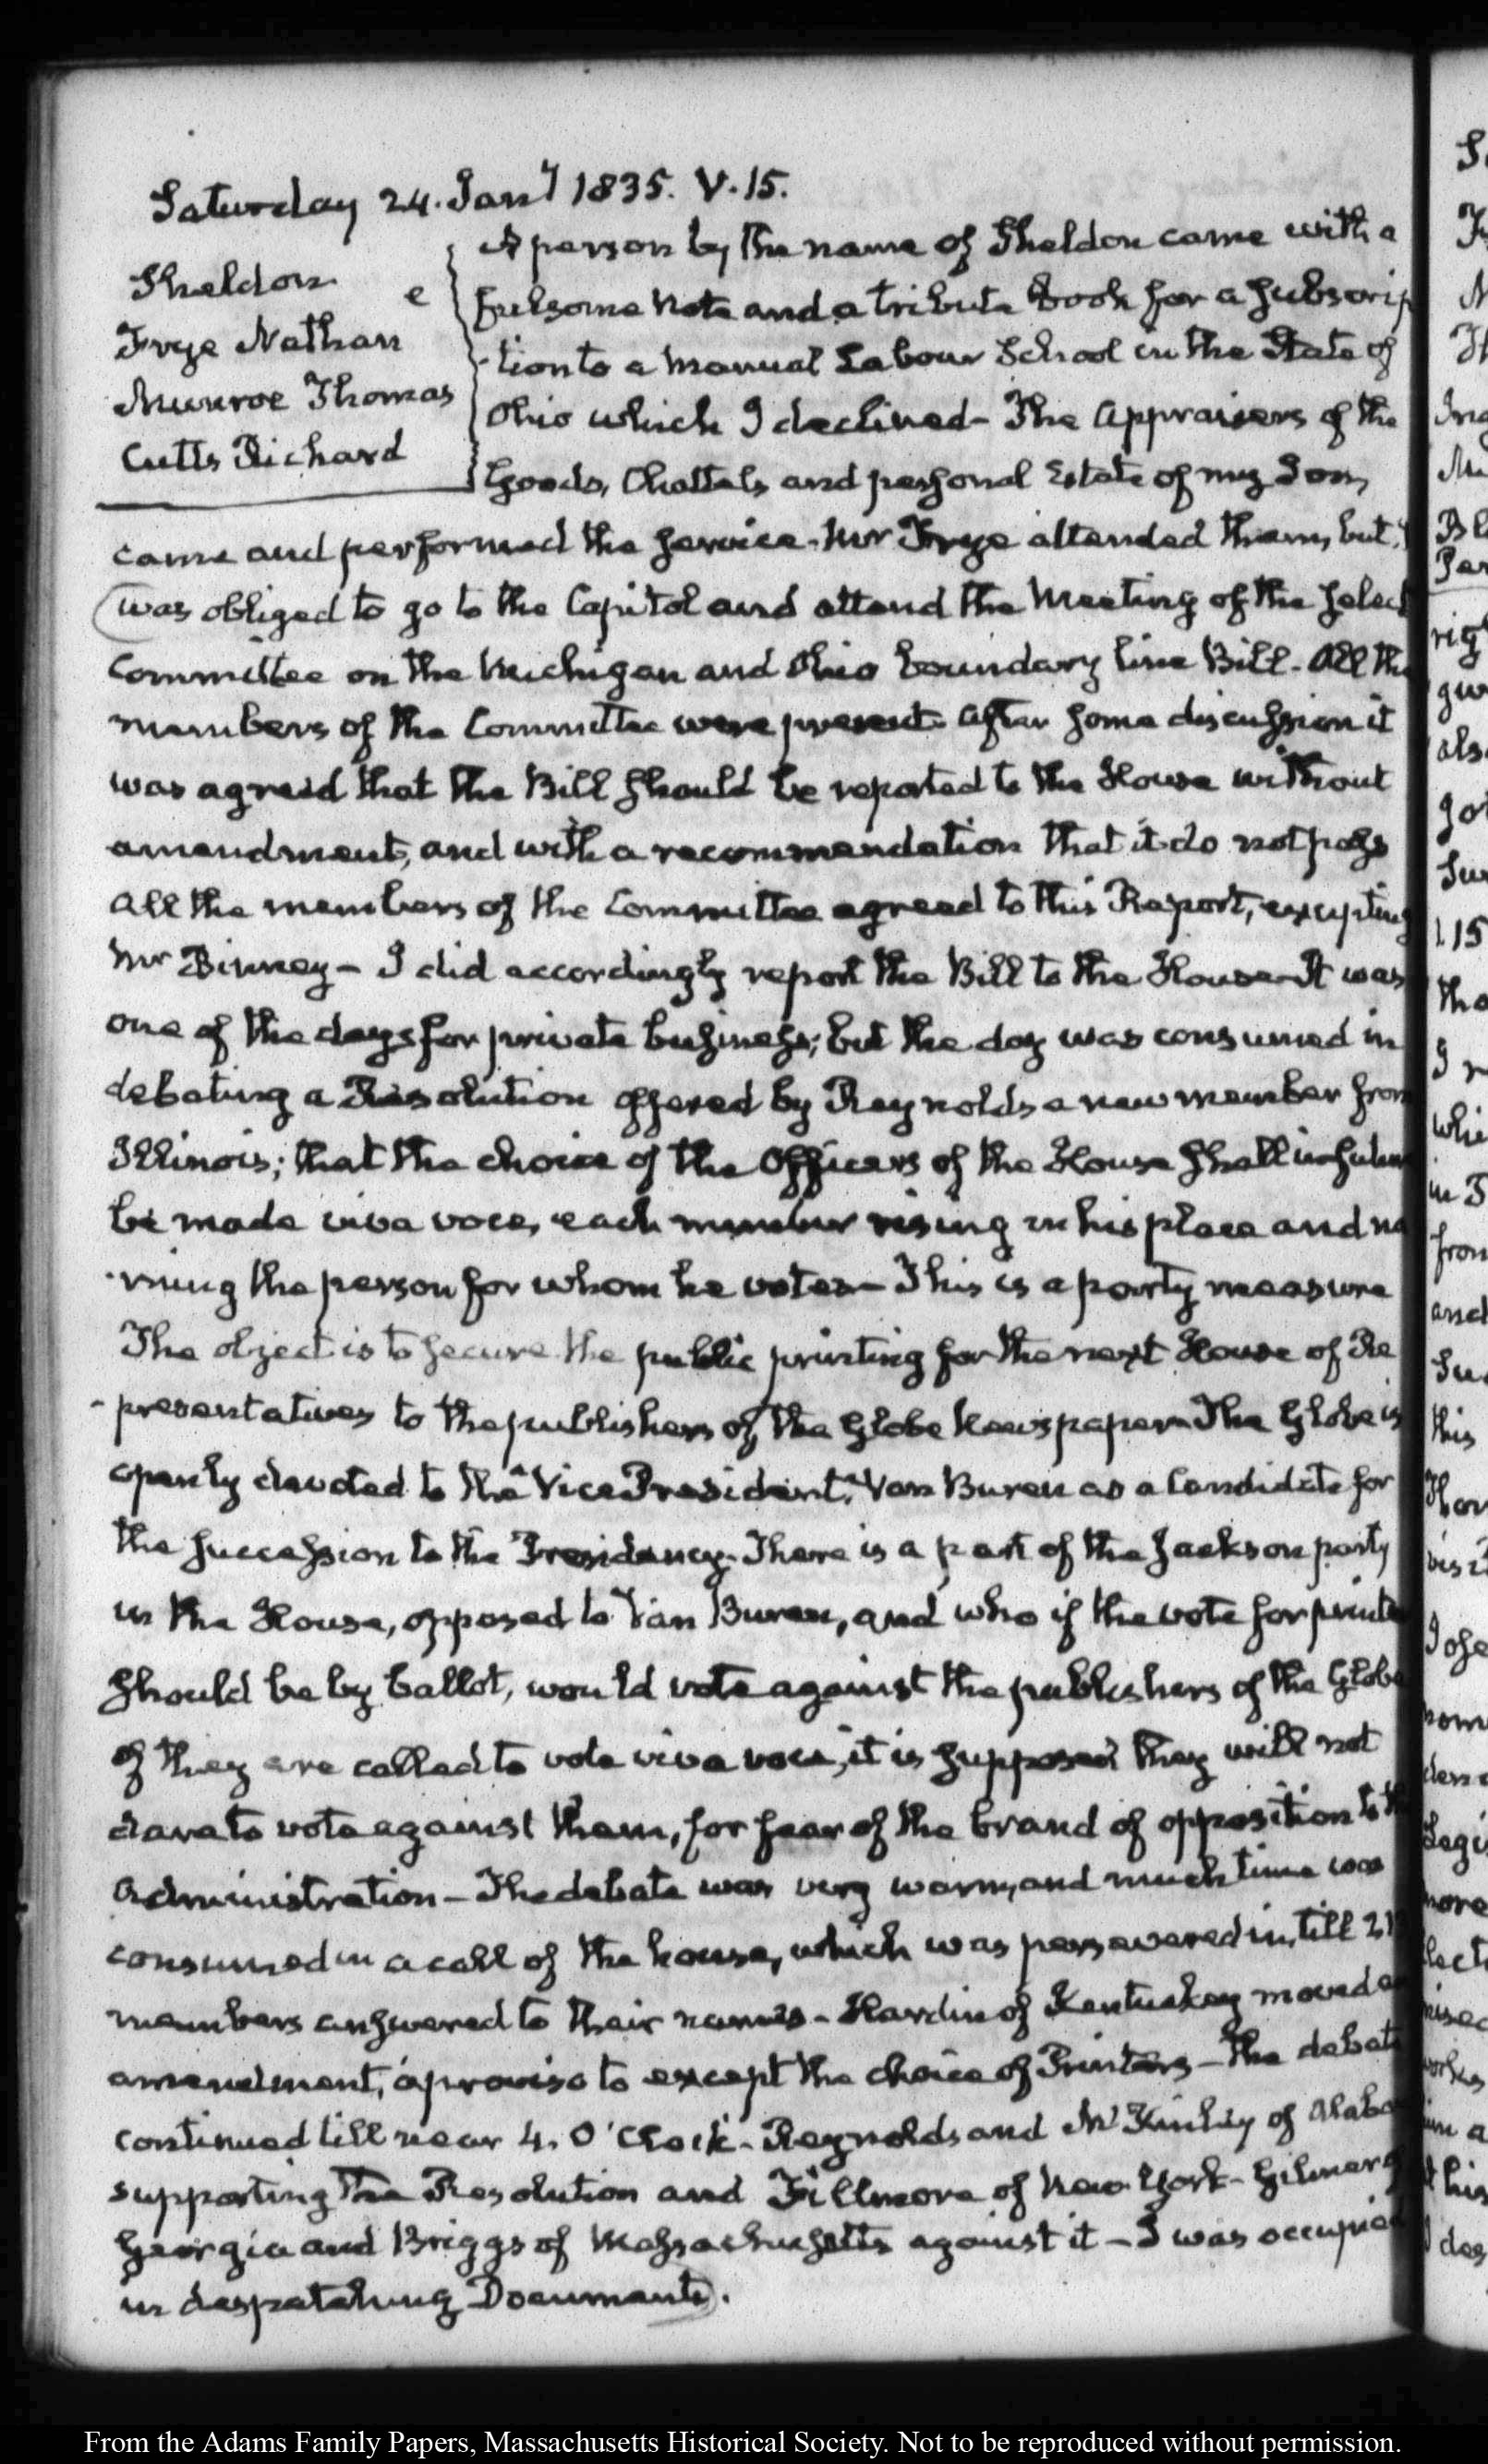 Saturday 24. Jany 1835. V. 15.
Sheldon e
Frye Nathan
Munroe Thomas
Cutts Richard
A person by the name of Sheldon came with a
fulsome Note and a tribute Book for a subscrip
-tion to a Manual Labour School in the State of
Ohio which I declined- The Appraisers of the
Goods, Chattels, and personal Estate of my Son,
came and performed the service. Mr Frye attended them, but
was obliged to go to the Capitol and attend the Meeting of the Select
Committee on the Michigan and Ohio boundary line Bill. All the
members of the Committee were present. After some discussion it
was agreed that the Bill should be reported to the House without
amendment, and with a recommendation that it do not pass
All the members of the Committee agreed to this Report, excepting
Mr Binney- I did accordingly report the Bill to the House- It was
one of the days for private business; but the day was consumed in
debating a Resolution offered by Reynolds a new member from
Illinois; that the choice of the Officers of the House shall in future
be made viva voce, each member rising in his place and na
-ming the person for whom he votes- This is a party measure
The object is to secure the public printing for the next House of Re
-presentatives to the publishers of the Globe Newspaper- The Globe is
openly devoted to the Vice President, Van Buren as a Candidate for
the succession to the Presidency. There is a part of the Jackson party
in the House, opposed to Van Buren, and who if the vote for printer
should be by ballot, would vote against the publishers of the Globe
If they are called to vote viva voce, it is supposed they will not
dare to vote against them, for fear of the brand of opposition to the
Administration- The debate was very warm, and much time was
consumed in a call of the house, which was persevered in, till 21
members answered to their names- Hardin of Kentuckey moved an
amendment, a proviso to except the choice of Printers- The debate
continued till near 4. O'Clock- Reynolds and McKinley of Alaba
supporting the Resolution and Fillmore of New York- Gilmer of
Georgia and Briggs of Massachusetts against it- I was occupied
in despatching Documents.
From the Adams Family Papers, Massachusetts Historical Society. Not to be reproduced without permission.